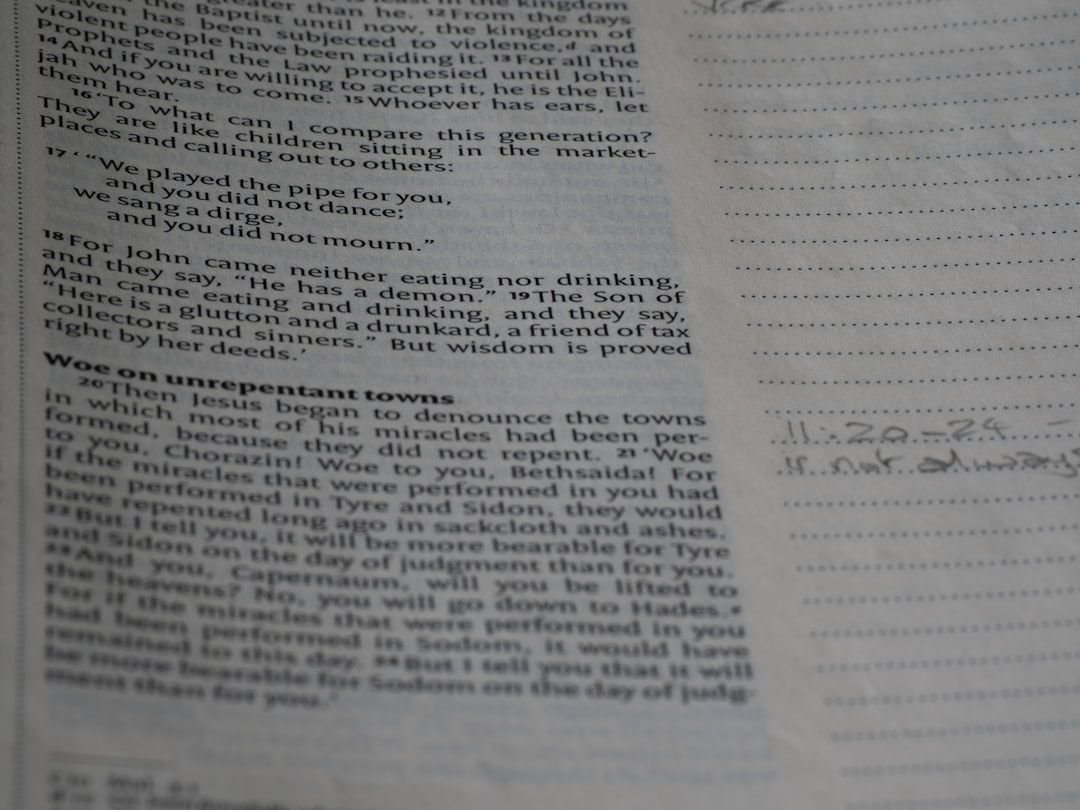 greater than he. 12 From the days
the Baptist until now, the kingdom of
heaven has been subjected to violence,d and
violent people have been raiding it. 13 For all the
Prophets and the Law prophesied until John.
14 And if you are willing to accept it, he is the Eli-
jah who was to come. 15 Whoever has ears, let
them hear.
16 ‘To what can I compare this generation?
They are like children sitting in the market-
places and calling out to others:
17 ‘ “We played the pipe for you,
and you did not dance;
we sang a dirge,
and you did not mourn.”
18 For John came neither eating nor drinking,
and they say, “He has a demon.” 19 The Son of
Man came eating and drinking, and they say,
“Here is a glutton and a drunkard, a friend of tax
collectors and sinners.” But wisdom is proved
right by her deeds.’
Woe on unrepentant towns
20 Then Jesus began to denounce the towns
in which most of his miracles had been per-
formed, because they did not repent. 21 ‘Woe
to you, Chorazin! Woe to you, Bethsaida! For
if the miracles that were performed in you had
been performed in Tyre and Sidon, they would
have repented long ago in sackcloth and ashes.
22 But I tell you, it will be more bearable for Tyre
and Sidon on the day of judgment than for you.
23 And you, Capernaum, will you be lifted to
the heavens? No, you will go down to Hades.e
For if the miracles that were performed in you
had been performed in Sodom, it would have
remained to this day. 24 But I tell you that it will
be more bearable for Sodom on the day of judg-
ment than for you.’
11:20-24 -
is not always